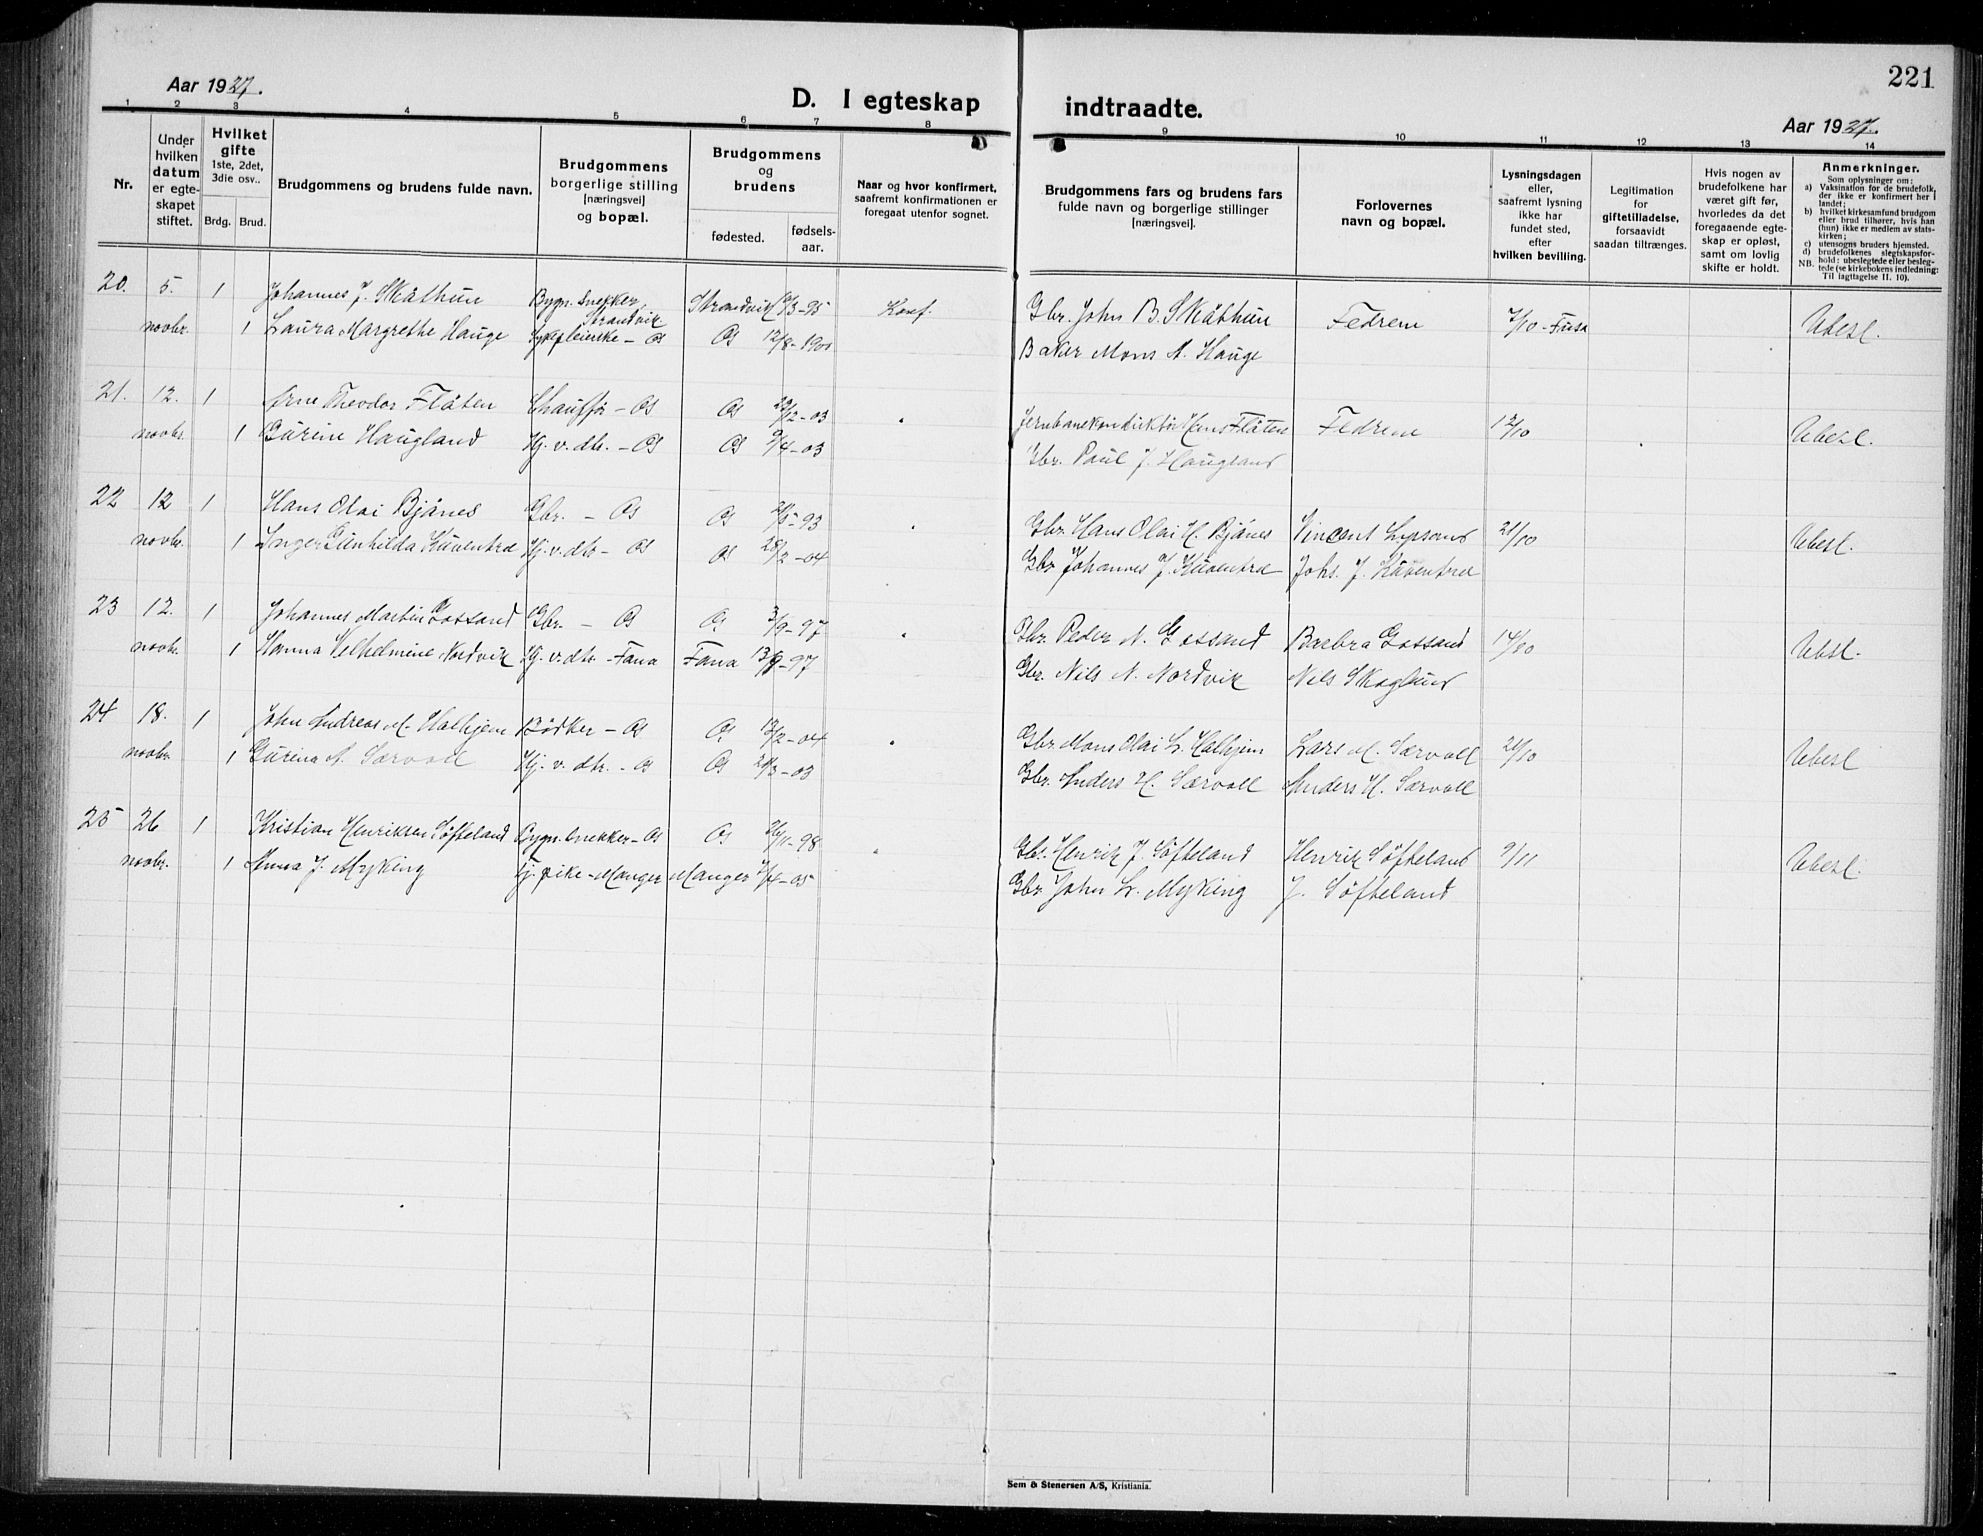 221
Aar 1927.
D. I egteskap indtraadte.
Aar 1927.
1 2 3 4 5 6 7 8 9 10 11 12 13 14
Nr.
Under hvilken datum er egteskapet stiftet.
Hvilket gifte 1ste, 2det, 3die osv..
Brdg. Brud.
Brudgommens og brudens fulde navn.
Brudgommens borgerlige stilling [næringsvei] og bopæl.
Brudgommens og brudens
fødested. fødselsaar.
Naar og hvor konfirmert, saafremt konfirmationen er foregaat utenfor sognet.
Brudgommens fars og brudens fars fulde navn og borgerlige stillinger [næringsvei].
Forlovernes navn og bopæl.
Lysningsdagen eller, saafremt lysning ikke har fundet sted, efter hvilken bevilling.
Legitimation for giftetilladelse, forsaavidt saadan tiltrænges.
Hvis nogen av brudefolkene har været gift før, hvorledes da det foregaaende egteskap er opløst, samt om lovlig skifte er holdt.
Anmerkninger.
Som oplysninger om:
a) Vaksination for de brudefolk, der ikke er konfirmert her i landet;
b) hvilket kirkesamfund brudgom eller brud tilhører, hvis han (hun) ikke er medlem av statskirken;
c) utensogns bruders hjemsted.
d) brudefolkenes slegtskapsforhold: ubeslegtede eller beslegtede (se kirkebokens indledning:
NB. Til iagttagelse II. 10).
20. 5. 1 Johannes J. Skåthun Bygn. snekker Strandvik Strandvik /3-95 Konf. Gbr. John B. Skåthun Fedrene 7/10 - Fusa Ubesl.
novbr. 1 Laura Margrethe Hauge Sykepleierske - Os Os 12/8-1901 Baker Mons A. Hauge
21. 12. 1 Arne Theodor Flåten Chauffør - Os Os /12-03 " Jernbanekonduktør Hans Flåten Fedrene 12/10 Ubesl.
novbr. 1 Burine Haugland Hj. v. dtr. - Os Os 9/4-03 Gbr. Paul J. Haugland
22 12 1 Hans Olai Bjånes Gbr. - Os Os /5-93 " Gbr. Hans Olai H. Bjånes Vincent Lepsønd 21/10 Ubesl.
novbr. 1 Inger Gunhilda Kuventræ Hj. v. dtr - Os Os 28/2-04 Gbr. Johannes J. Kuventræ Johs. J. Kuventræ
23 12. 1 Johannes Martin Gåssand Gbr. - Os Os 3/9-97 " Gbr. Peder N. Gåssand Barbra Gåssand 14/10 Ubesl.
novbr. 1 Hanna Vilhelmine Nordvik Hj. v. dtr - Fana Fana 13/9-97 Gbr. Nils N. Nordvik Nils Skoglund
24 18. 1 John Andreas M. Halhjem Bødker - Os Os 13/2-04 " Gbr. Mons Olai L. Halhjem Lars M. Særvoll 21/10 Ubesl
novbr. 1 Gurina A. Særvoll Hj. v. dtr. - Os Os /3-03 Gbr. Anders H. Særvoll Anders H. Særvoll
25 26 1 Kristian Henriksen Søfteland Bygn. snekker - Os Os 26/11-98 " Gbr. Henrik J. Søfteland Henrik Søfteland 9/11 Ubesl.
novbr. 1 Anna J. Myking Tj. pike - Manger Manger /4-05 Gbr. John L. Myking J. Søfteland
Sem & Stenersen A/S, Kristiania.